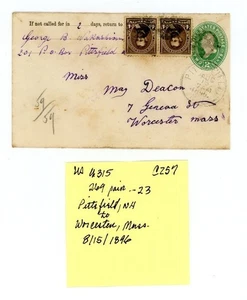 If not called for in 2 days, return to
George B.
201 P.O. Box Pittsfield
Miss
May Deacon
7 Geneva St
Worcester Mass
59
59
UA U315 C257
269 pair - 23
Pittsfield, NH
to
Worcester, Mass.
8/15/1896